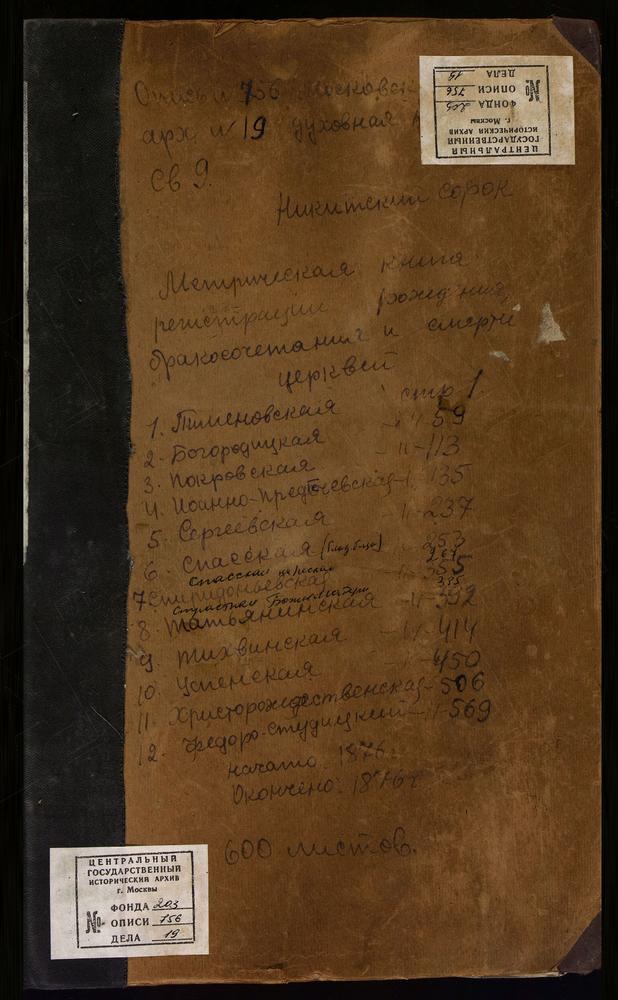 Опись № 756 Московск
арх № 19 духовная
Св 9.
№
ЦЕНТРАЛЬНЫЙ
ГОСУДАРСТВЕННЫЙ
ИСТОРИЧЕСКИЙ АРХИВ
г. Москвы
ФОНДА 203
ОПИСИ 756
ДЕЛА 19
Никитский сорок
Метрическая книга
регистрации рождения,
бракосочетания и смерти
церквей
стр 1
1. Пименовская -"- 59
2. Богородицкая -"- 113
3. Покровская
4. Иоанно-Предтечевская -"- 135
5. Сергеевская -"- 237
6. Спасская (Блад. б-ца) 253
Спасская церковь 267
7 Спиридоньевская -"- 355
Страстная Божией Матери 385
8. Татьянинская -"- 392
9 Тихвинская -"- 414
10. Успенская -"- 450
11. Христорождественская - 506
12. Федоро-Студицкий -"- 569
начато: 1876
Окончено: 1876 г
600 листов.
ЦЕНТРАЛЬНЫЙ
ГОСУДАРСТВЕННЫЙ
ИСТОРИЧЕСКИЙ АРХИВ
г. Москвы
№
ФОНДА 203
ОПИСИ 756
ДЕЛА 19